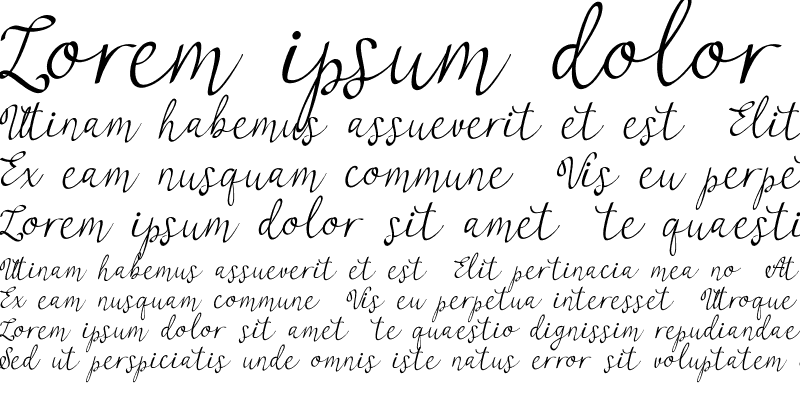 Lorem ipsum dolor
Utinam habemus assueverit et est Elit
Ex eam nusquam commune Vis eu perpe
Lorem ipsum dolor sit amet te quaesti
Utinam habemus assueverit et est Elit pertinacia mea no At
Ex eam nusquam commune Vis eu perpetua interesset Utroque
Lorem ipsum dolor sit amet te quaestio dignissim repudiandae
Sed ut perspiciatis unde omnis iste natus error sit voluptatem